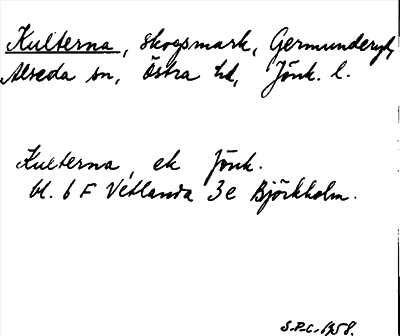 Kulterna, skogsmark, Germunderyd,
Alseda sn, Östra hd, Jönk. l.
Kulterna, ek Jönk.
bl. 6 F Vetlanda 3e Björkholm.
S.P.C. 1958.